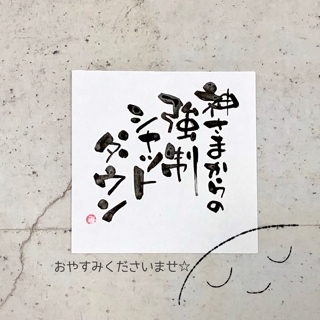 神さまからの
強制
シャット
ダウン
おやすみくださいませ☆